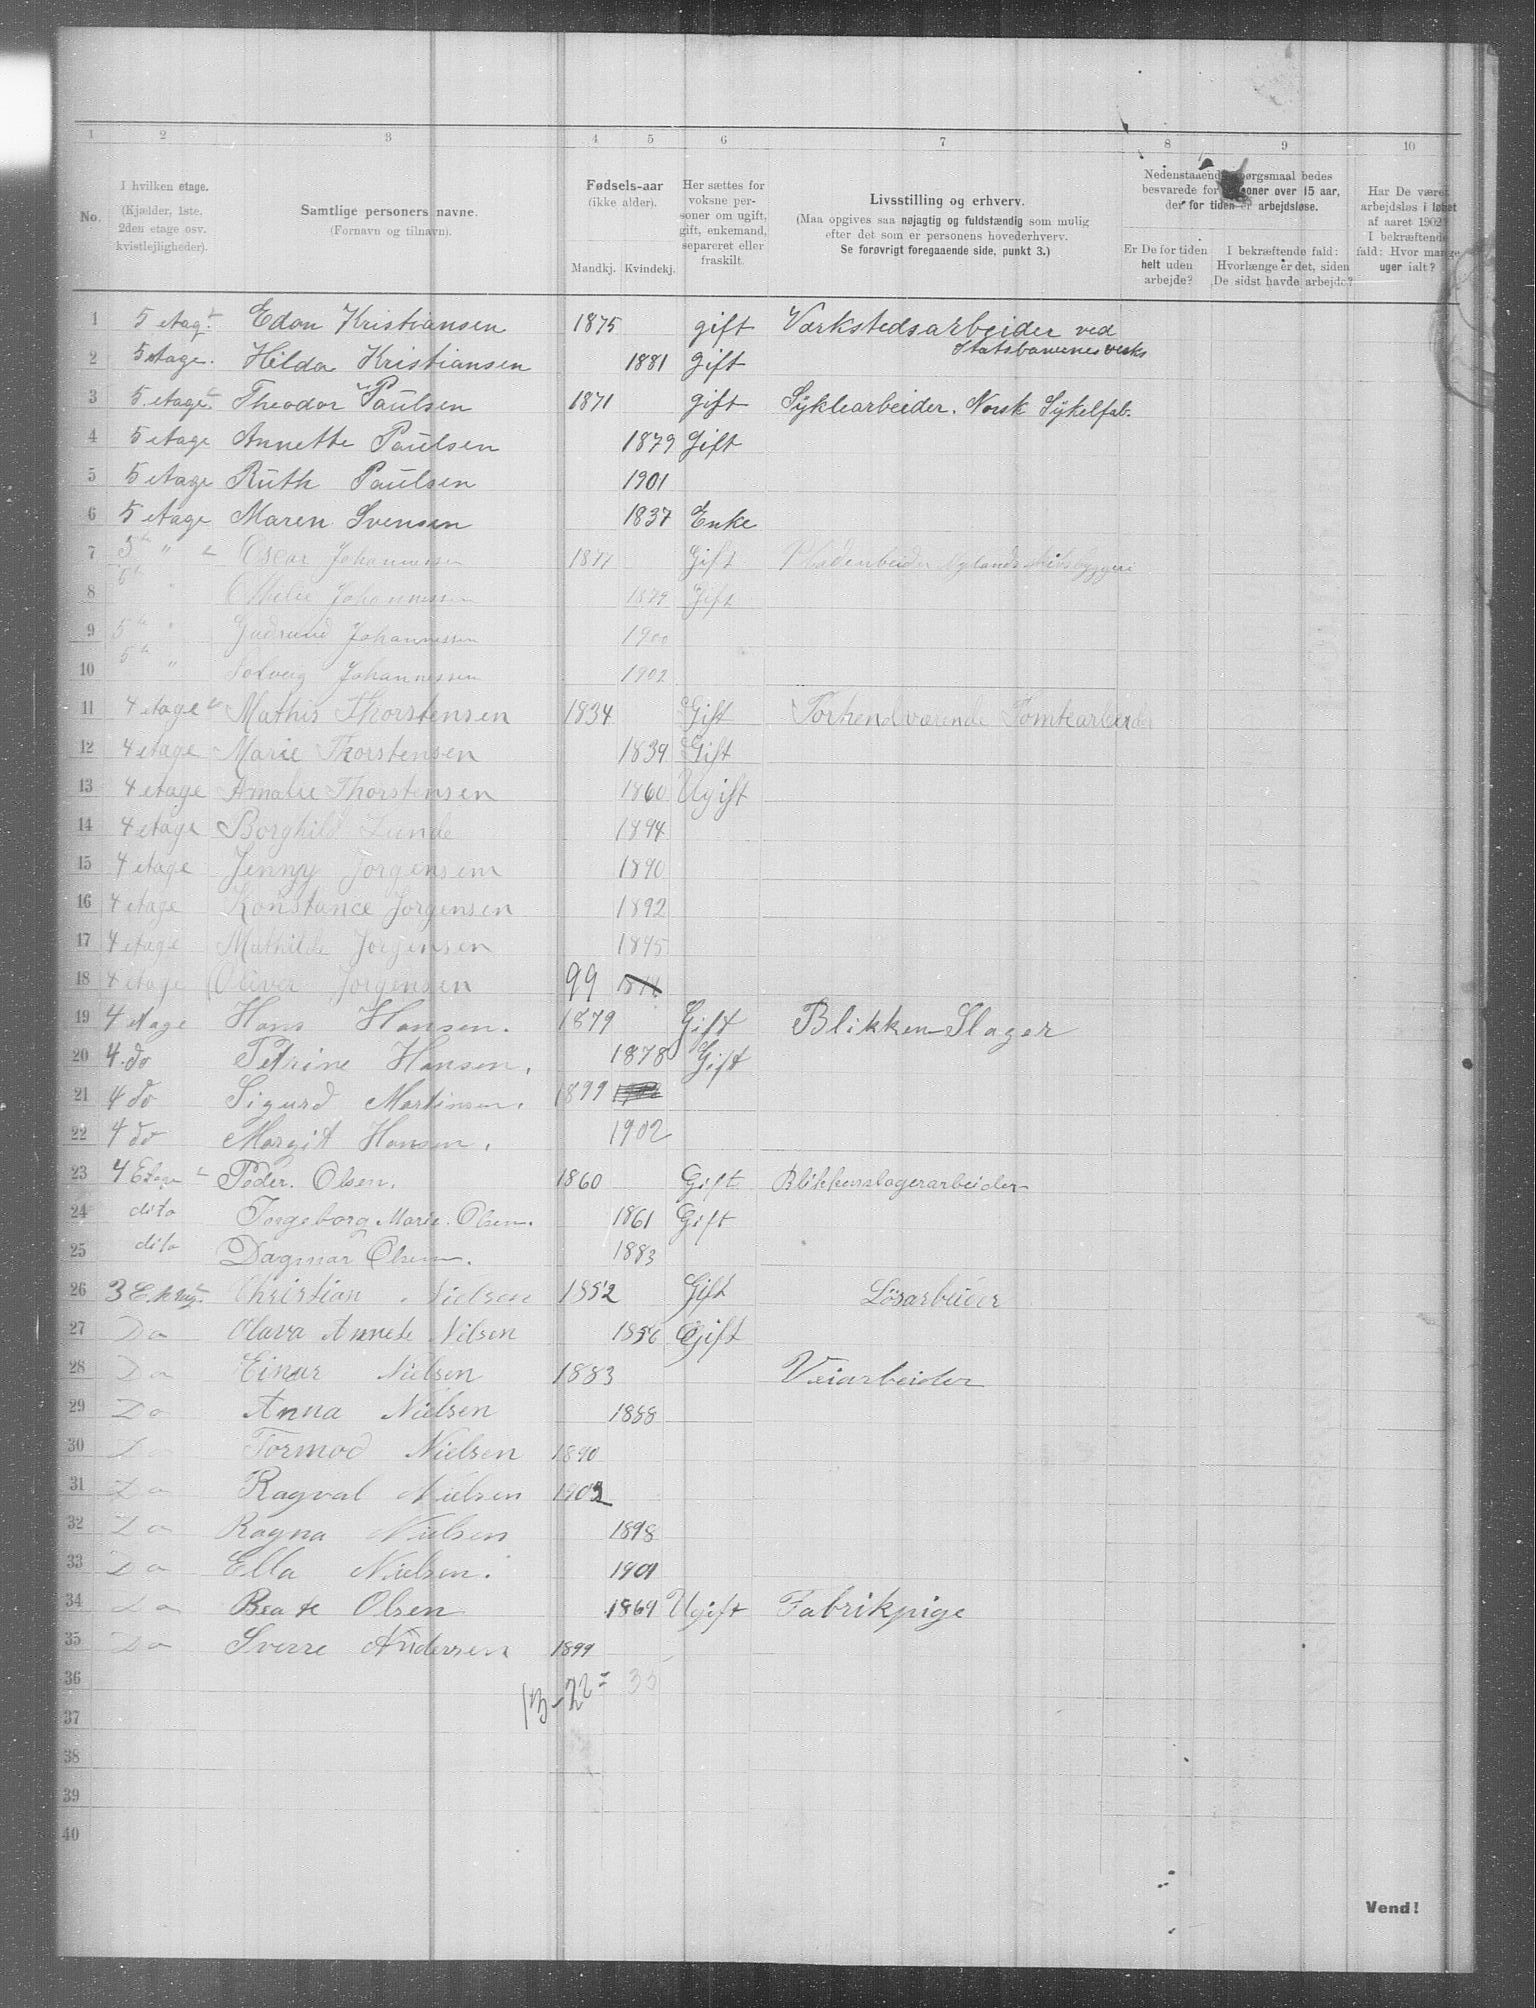 1 2 3 4 5 6 7 8 9 10
No.
I hvilken etage. (Kjælder, 1ste. 2den etage osv. kvistlejligheder).
Samtlige personers navne. (Fornavn og tilnavn).
Fødsels-aar (ikke alder). Mandkj. Kvindekj.
Her sættes for voksne personer om ugift, gift, enkemand, separeret eller fraskilt.
Livsstilling og erhverv. (Maa opgives saa nøjagtig og fuldstændig som mulig efter det som er personens hovederhverv. Se forøvrigt foregaaende side, punkt 3.)
Nedenstaaende spørgsmaal bedes besvarede for personer over 15 aar, der for tiden er arbejdsløse.
Er De for tiden helt uden arbejde?
I bekræftende fald: Hvorlænge er det, siden De sidst havde arbejde?
Har De været arbejdsløs i løbet af aaret 1902? I bekræftende fald: Hvor mange uger ialt?
1 5 etag. Edon Kristiansen 1875 gift Værkstedsarbeider ved Statsbanernes verks
2 5 etage. Hilda Kristiansen 1881 Gift
3 5. etage. Theodor Paulsen 1871 gift Syklearbeider. Norsk Sykelfab.
4 5 etage Annette Paulsen 1879 Gift
5 5 etage Ruth Paulsen 1901
6 5 etage Maren Svensen 1837 Enke
7 5 " Oscar Johannessen 1877 Gift Pladearbeider Nylands
8 " Othelie Johannessen 1879 Gift
9 5 " Gudrund Johannessen 1900
10 5 " Solveig Johannessen 1902
11 4 etage Mathis Thorstensen 1834 Gift Forhendværende Tomtearbeider
12 4 etage Marie Thorstensen 1839 Gift
13 4 etage Amalie Thorstensen 1860 Ugift
14 4 etage Borghild Lunde 1894
15 4 etage Jenny Jorgensen 1890
16 4 etage Konstance Jorgensen 1892
17 4 etage Mathilde Jorgensen 1895
18 4 etage Oliver Jorgensen 99
19 4 etage Hans Hansen. 1879 Gift Blikken-Slager
20 4. do Petrine Hansen. 1878 Gift
21 4 do Sigurd Martinsen. 1899
22 4 do Margit Hansen. 1902
23 4 Etage Peder. Olsen. 1860 Gift Blikkenslagerarbeider
24 dito Ingeborg Marie. Olsen. 1861 Gift
25 dito Dagmar Olsen. 1883
26 3 Christian Nielsen 1852 Gift Lösarbeider
27 Do Olava Annete Nilsen 1856 Gift
28 Do Einar Nielsen 1883 Veiarbeider
29 Do Anna Nielsen 1888
30 Do Tormod Nielsen 1890
31 Do Ragval Nielsen 1902
32 Do Ragna Nielsen 1898
33 Do Ella Nielsen. 1901
34 Do Beate Olsen 1869 Ugift Fabrikpige
35 Do Sverre Andersen 1899
36 13-22= 35
37
38
39
40
Vend!